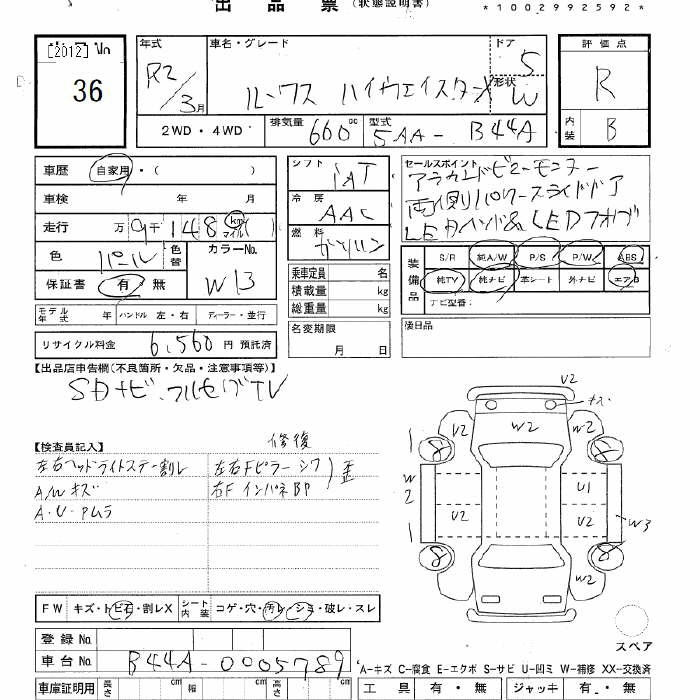 出品票(状態説明書)
*1002992592*
[2012] No
36
年式
R2/3月
車名・グレード
ルークス ハイウェイスターX
ドア
5
形状
W
評価点
R
内装
B
2WD・4WD
排気量 660 cc
型式 5AA- B44A
車歴 自家用・( )
車検 年 月
走行 万 9千148 km マイル( )
色 パール
色替
カラーNo.
W13
保証書 有 無
モデル年式 年 ハンドル 左・右 ディーラー・並行
リサイクル料金 6,560円 預託済
シフト
IAT
冷房
AAC
燃料
ガソリン
乗車定員 名
積載量 kg
総重量 kg
名変期限
月 日
セールスポイント
アラウンドビューモニター
両側パワースライドドア
LEDヘッド& LEDフォグ
装備品
S/R 純A/W P/S P/W ABS
純TV 純ナビ 革シート 外ナビ エアB
ナビ型番:
後日品
【出品店申告欄(不良箇所・欠品・注意事項等)】
SDナビ.フルセグTV
【検査員記入】
修復
左右ヘッドライトステー割レ
左右Fピラー シワ
歪
A/Wキズ
右F インパネBP
A・U・Pムラ
U2
キズ
W2
U2
W2
S
S
W2
U1
U2
U2
W3
S
S
W2
スペア
FW キズ・トビ石・割レX シート内装 コゲ・穴・汚レ・シミ・破レ・スレ
登録No.
車台No. B44A-0005789
A-キズ C-腐食 E-エクボ S-サビ U-凹ミ W-補修 XX-交換済
車庫証明用 長さ cm 幅 cm 高さ cm
工具 有・無 ジャッキ 有・無